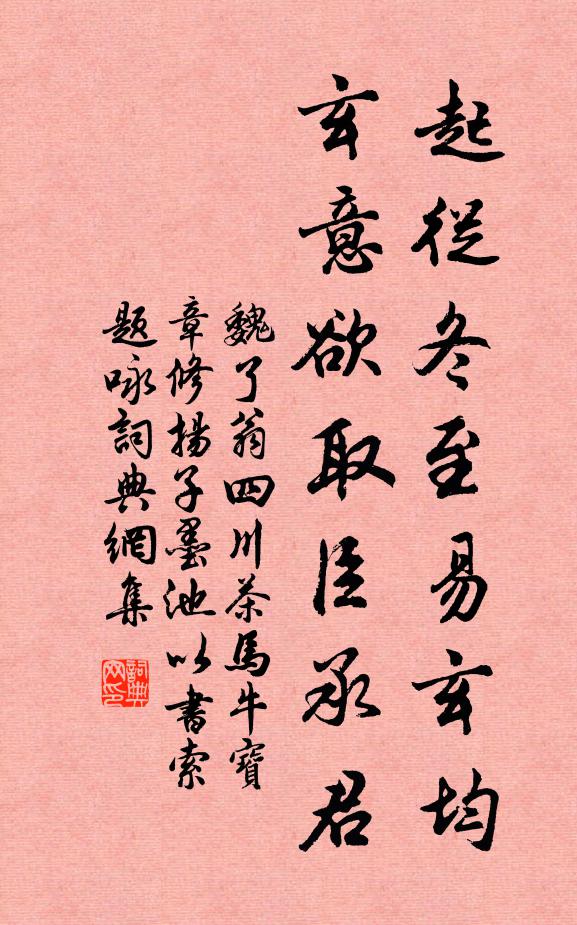 起從冬至易玄均
玄意欲取臣承君
魏了翁四川茶馬牛寶
章修揚子墨池以書索
題咏詞典網集
詞典网印